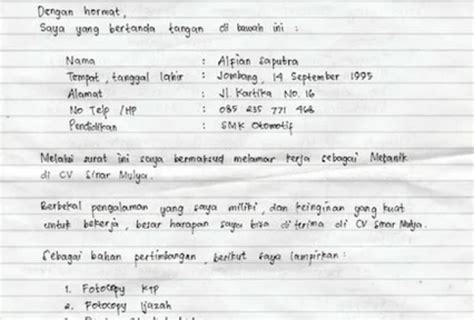 Dengan hormat,
Saya yang bertanda tangan di bawah ini :
Nama : Alfian Saputra
Tempat, tanggal lahir : Jombang, 14 September 1995
Alamat : Jl. Kartika No. 16
No Telp /HP : 085 235 771 468
Pendidikan : SMK Otomotif
Melalui surat ini saya bermaksud melamar kerja sebagai Mekanik
di CV Sinar Mulya.
Berbekal pengalaman yang saya miliki, dan keinginan yang kuat
untuk bekerja, besar harapan saya bisa diterima di CV Sinar Mulya.
Sebagai bahan pertimbangan, berikut saya lampirkan :
1. Fotocopy KTP
2. Fotocopy Ijazah